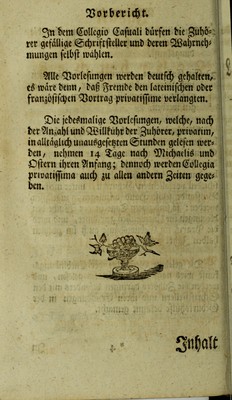 Vorbericht.
In dem Collegio Casuali dürfen die Zuhö-
rer gefällige Schriftsteller und deren Wahrneh-
mungen selbst wählen.
Alle Vorlesungen werden deutsch gehalten,
es wäre denn, daß Fremde den lateinischen oder
französischen Vortrag privatissime verlangten.
Die jedesmalige Vorlesungen, welche, nach
der Anzahl und Willkühr der Zuhörer, privatim,
in alltäglich unausgesetzten Stunden gelesen wer-
den, nehmen 14 Tage nach Michaelis und
Ostern ihren Anfang; dennoch werden Collegia
privatissima auch zu allen andern Zeiten gege-
ben.
Inhalt